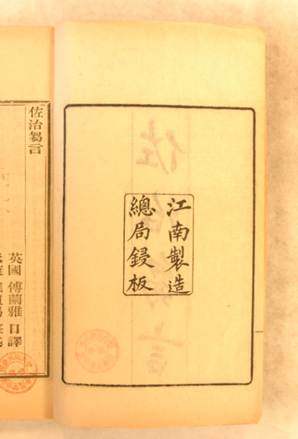 江南製造
總局鋟板
佐治芻言
英國 傅蘭雅 口譯